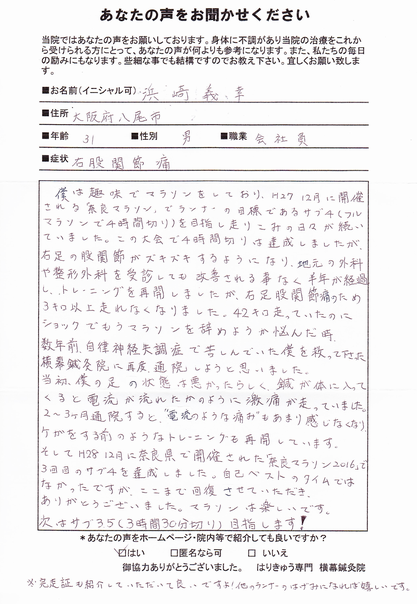 あなたの声をお聞かせください
当院ではあなたの声をお願いしております。身体に不調があり当院の治療をこれか
ら受けられる方にとって、あなたの声が何よりも参考になります。また、私たちの毎日
の励みにもなります。些細な事でも結構ですのでお教え下さい。宜しくお願い致しま
す。
■お名前(イニシャル可) 浜崎義幸
■住所 大阪府八尾市
■年齢 31 ■性別 男 ■職業 会社員
■症状 右股関節痛
僕は趣味でマラソンをしており、H27 12月に開催
される「奈良マラソン」でランナーの目標であるサブ4(フル
マラソンで4時間切り)を目指し走りこみの日々が続い
ていました。この大会で4時間切りは達成しましたが、
右足の股関節がズキズキするようになり、地元の外科
や整形外科を受診しても改善される事なく半年が経過
し、トレーニングを再開しましたが、右足股関節痛のため
3キロ以上走れなくなりました。42キロ走っていたのに
ショックでもうマラソンを辞めようか悩んだ時、
数年前、自律神経失調症で苦しんでいた僕を救って下さった
横幕鍼灸院に再度、通院しようと思いました。
当初、僕の足の状態は悪かったらしく、鍼が体に入って
くると電流が流れたかのように激痛が走っていました。
2~3ヶ月通院すると、"電流のような痛み"もあまり感じなくなり、
ケガをする前のようなトレーニングも再開しています。
そしてH28 12月に奈良県で開催された「奈良マラソン2016」で
3回目のサブ4を達成しました。自己ベストのタイムでは
なかったですが、ここまで回復させていただき、
ありがとうございました。マラソンは楽しいです。
次はサブ3.5(3時間30分切り)目指します!
*あなたの声をホームページ・院内等で紹介しても良いですか?
☑はい □匿名なら可 □いいえ
御協力ありがとうございました。 はりきゅう専門 横幕鍼灸院
※完走証も紹介していただいて良いですよ!他のランナーのはげみになれば嬉しいです。